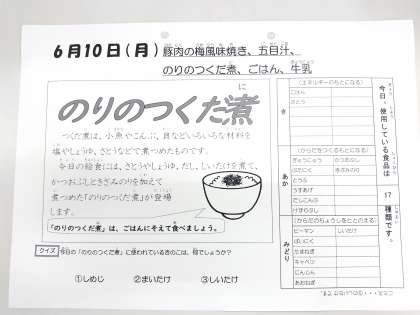 6月10日(月) 豚肉の梅風味焼き、五目汁、
のりのつくだ煮、ごはん、牛乳
のりのつくだ煮
に
つくだ煮は、小魚やこんぶ、貝などいろいろな材料を
塩やしょうゆ、さとうなどで煮つめたものです。
今日の給食には、さとうやしょうゆ、だし、しいたけを煮て、
かつおぶしときざみのりを加えて
煮つめた「のりのつくだ煮」が登場
します。
「のりのつくだ煮」は、ごはんにそえて食べましょう。
クイズ 今日の「のりのつくだ煮」に使われているきのこは、何でしょうか?
①しめじ ②まいたけ ③しいたけ
今日、使用している食品は
17
種類です。
き
(エネルギーのもとになる)
ごはん
さとう
あか
(からだをつくるもとになる)
ぎゅうにゅう かつおぶし
ぶたにく
とうふ
うすあげ
だしこんぶ
けずりぶし
みどり
(からだのちょうしをととのえる)
ピーマン しいたけ
ばいにく
たまねぎ
キャベツ
にんじん
あおねぎ